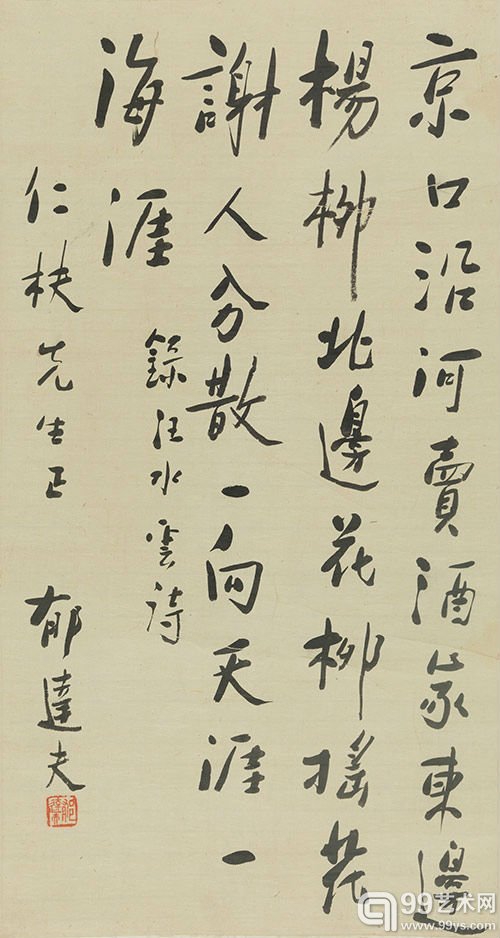 京口沿河賣酒家東邊
楊柳北邊花柳搖花
謝人分散一向天涯一
海涯
錄汪水雲詩
仁扶先生正
郁達夫
99艺术网
www.99ys.com